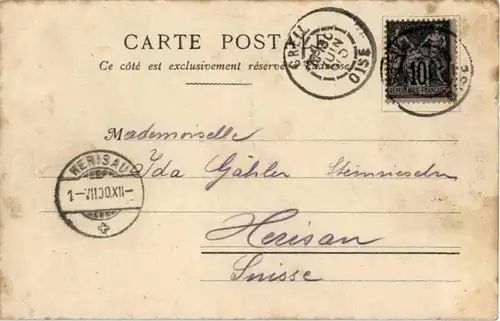 CARTE POST
Ce côté est exclusivement réservé
CREIL
JUIN
OISE
10
REPUBLIQUE FRANCAISE
Mademoiselle
Ida Gähler
HERISAU
1-VII.00.XII-
Herisau
Suisse